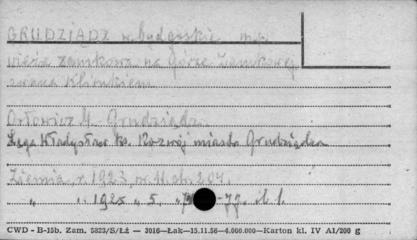 GRUDZIĄDZ w. bydgoskie m.p.
wieża zamkowa na Górze Zamkowej
zwana Klimkiem
Orłowicz M. Grudziądz
Łęga Władysław ks. Rozwój miasta Grudziądza
Ziemia, r. 1923, nr 11. str. 204.
" " 1925 " 5. " -77. il. 1.
CWD - B-15b. Zam. 5823/S/Łź — 3016—Łak—15.11.56—4.000.000—Karton kl. IV A1/200 g